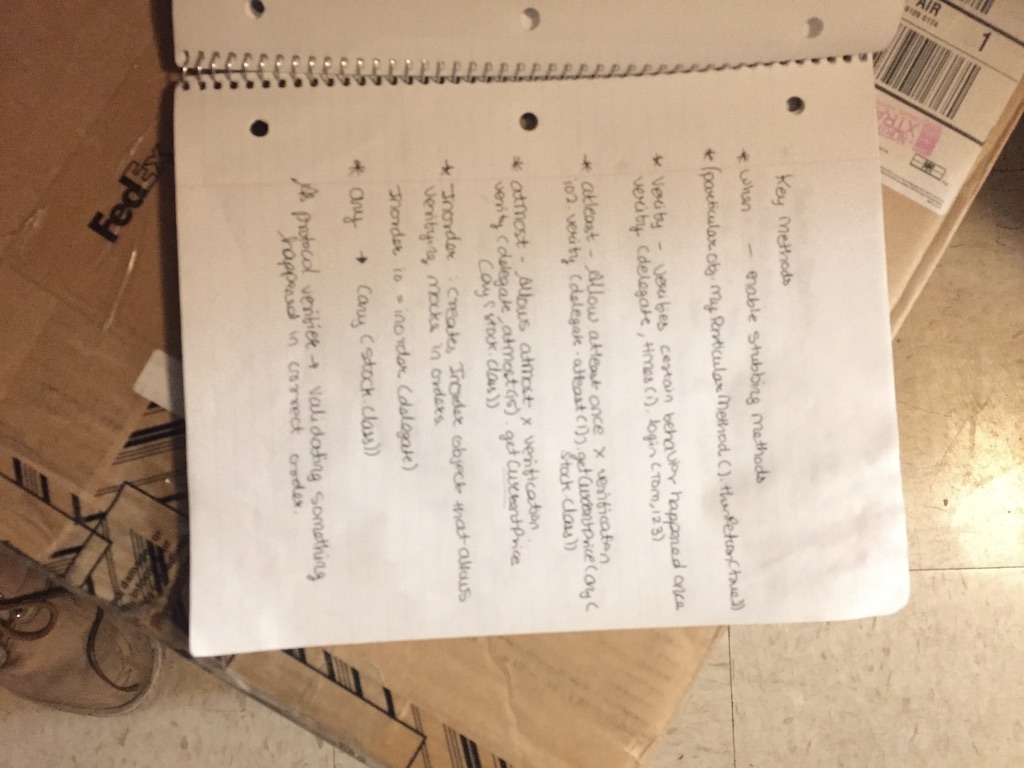 Key Methods
* when - enable stubbing methods
* (particularobj.myParticularMethod().thenReturn(true))
* Verify - verifies certain behavior happened once
verify (delegate, times(1).login(rom,123)
* atleast - Allow atleast once x verification
verify (delegate.atleast(1), getCurrentPrice(any(
stock.class))
* atmost - Allows atmost x verification
verify (delegate atmost(15).getCurrentPrice
(any(stock.class))
* Inorder : creates Inorder object that allows
verifying mocks in orders.
Inorder io = inorder (delegate)
* any → (any (stock class))
protocol verifier → validating something
happened in correct order.
FedEx
AIR
1
XTRA